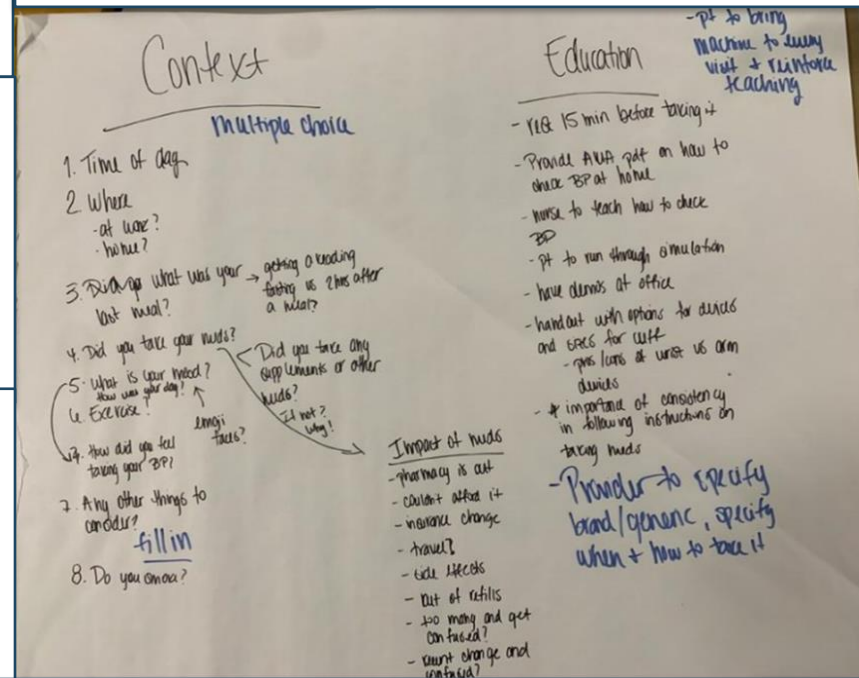 Context
multiple choice
1. Time of day
2. Where
- at work?
- home?
3. what was your
last meal?
→ getting a reading
fasting vs 2hrs after
a meal?
4. Did you take your meds?
Did you take any
supplements or other
meds?
If not?
Why!
5. What is your mood?
How was your day?
6. Exercise?
emoji
faces?
7. How did you feel
taking your BP?
7. Any other things to
consider?
fill in
8. Do you smoke?
Impact of meds
- pharmacy is out
- couldn't afford it
- insurance change
- travel?
- side effects
- out of refills
- too many and get
confused?
- recent change and
confused?
Education
- pt to bring
machine to every
visit + reinforce
teaching
- rest 15 min before taking it
- Provide AHA pdf on how to
check BP at home
- nurse to teach how to check
BP
- pt to run through simulation
- have demos at office
- handout with options for devices
and sizes for cuff
- pros/cons of wrist vs arm
devices
- * importance of consistency
in following instructions on
taking meds
- Provider to specify
brand/generic, specify
when + how to take it